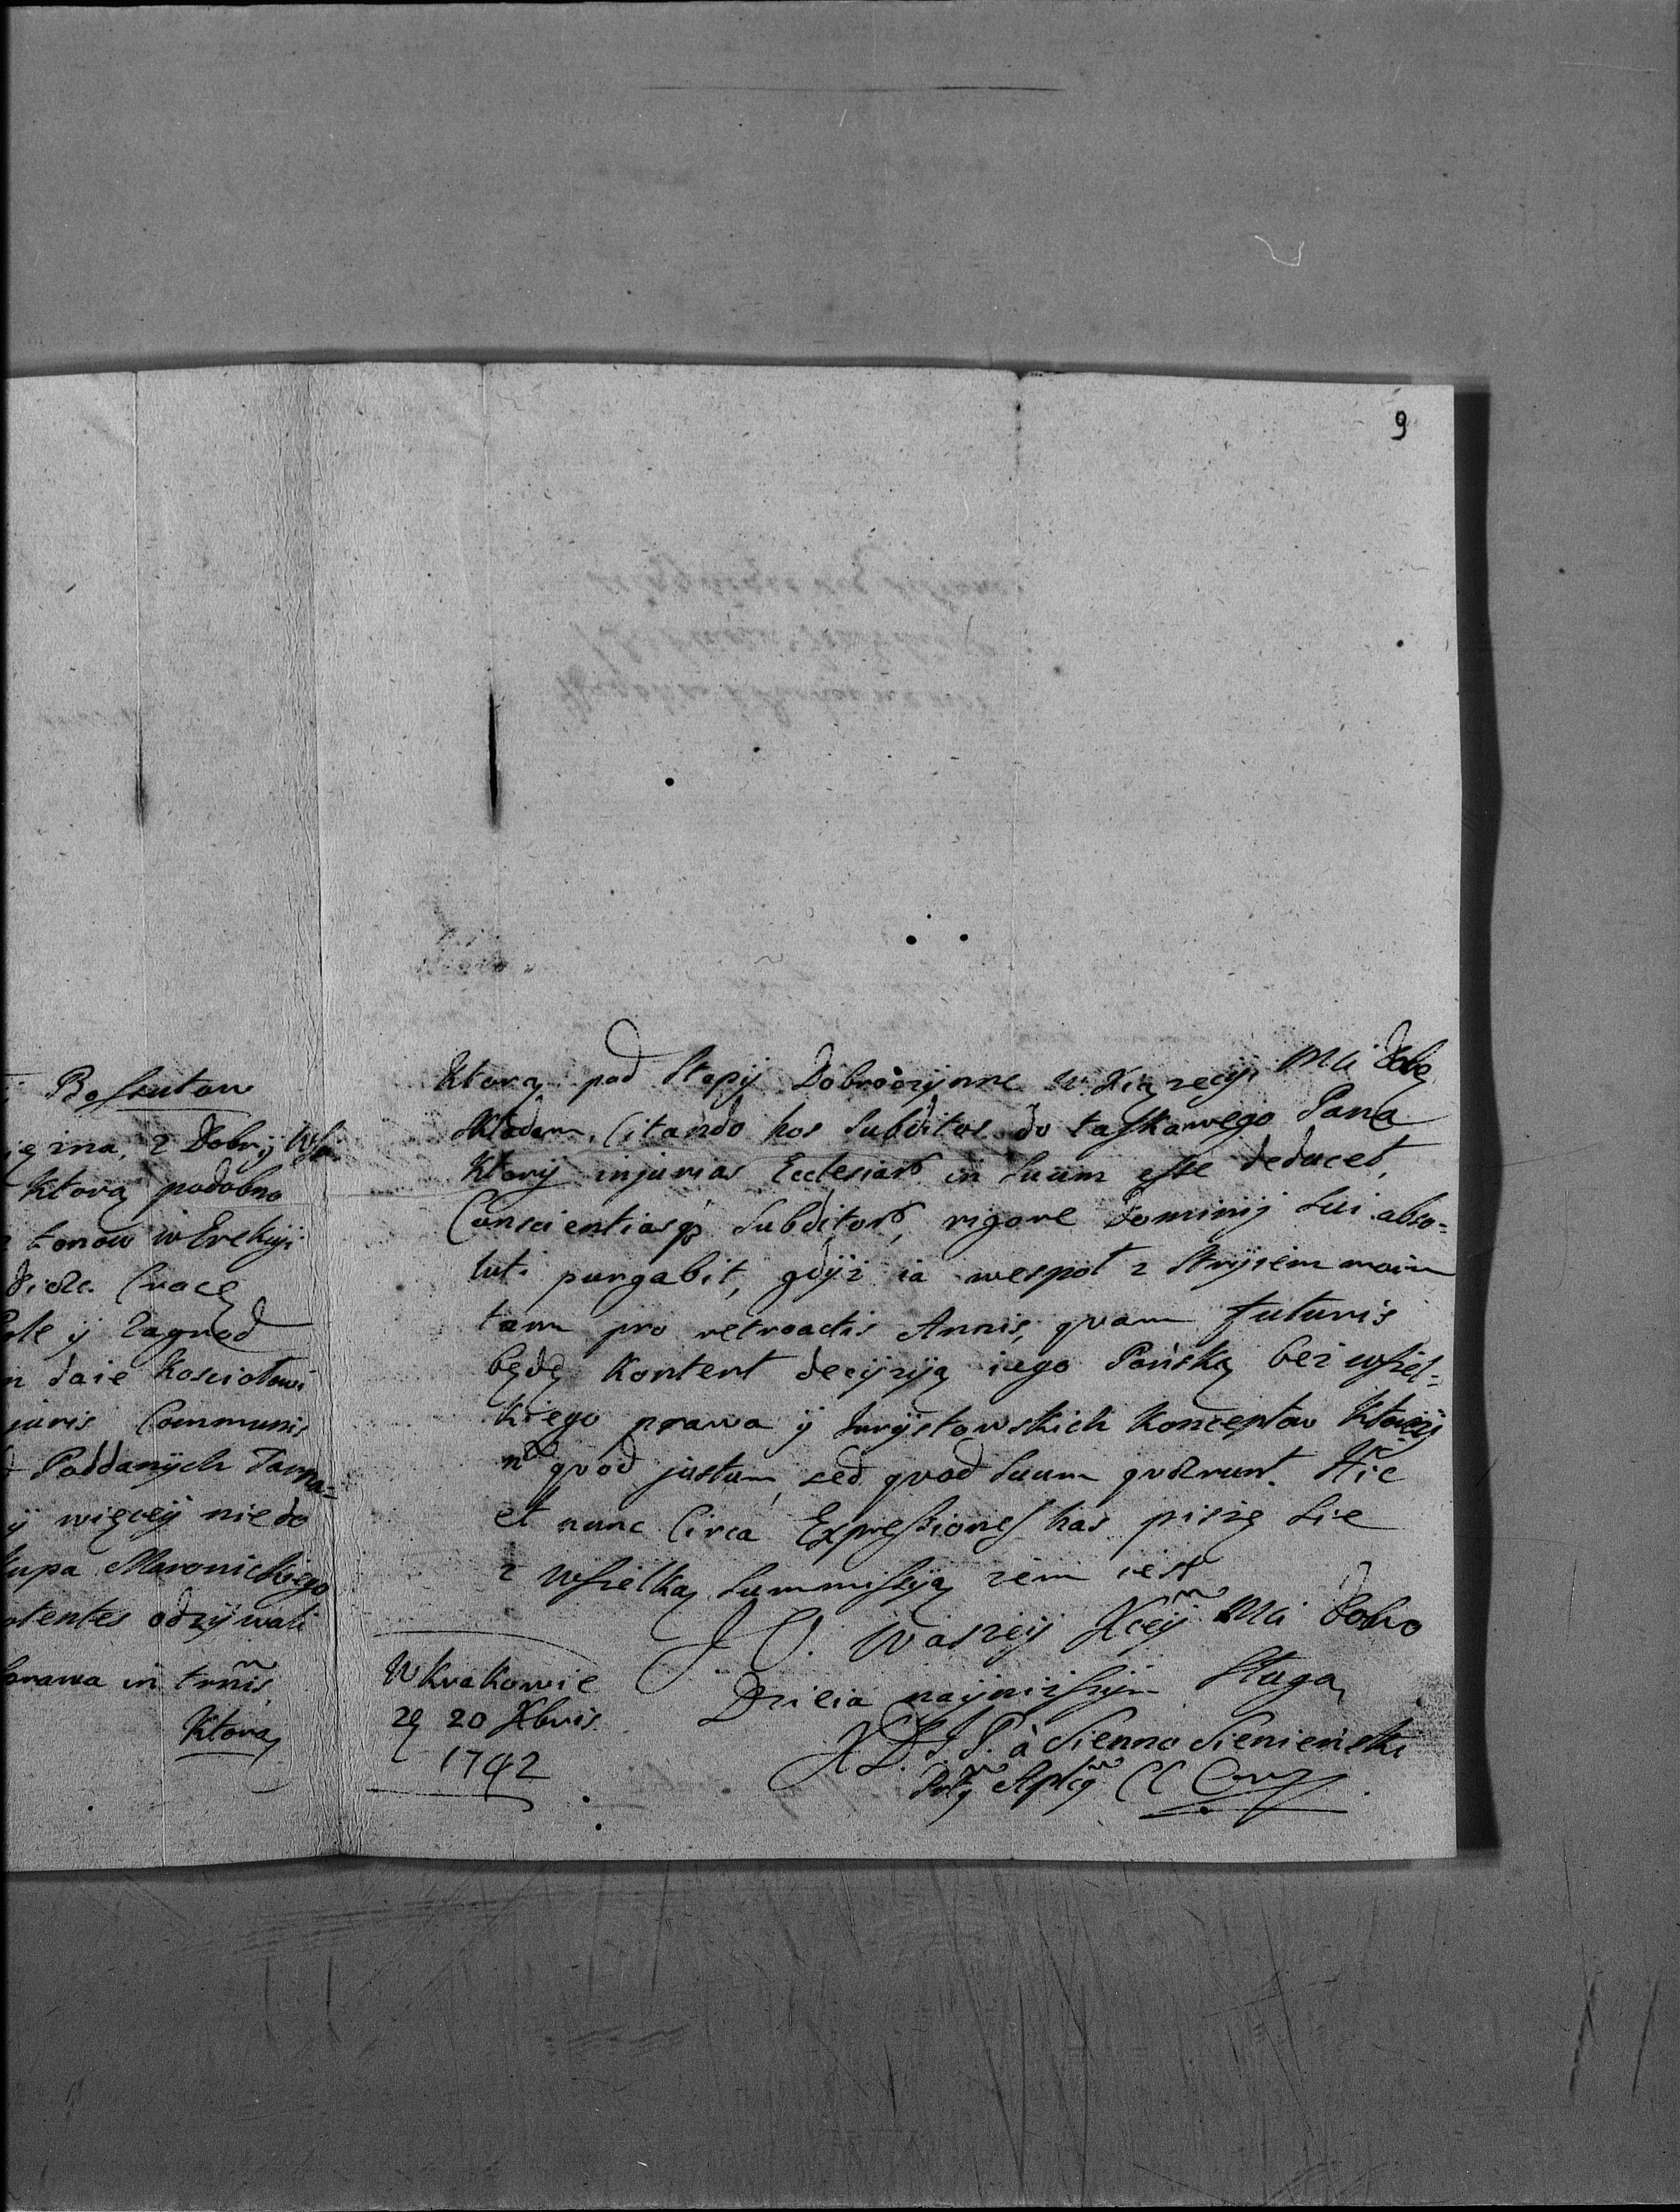 9
Bossutow
ięzna, z Dobrÿ
Ktorą podobno
tonow w Erekÿi
Cracę
ÿ Zagrod
daie Kosciołowi
juris Communis
Poddanÿch Tarna=
ÿ więceÿ nie do
kupa Maronickiego
otentes odzÿwali
prawa in trm̃is
Ktorą
Ktorą pod Stopÿ Dobroczÿnne W. Xiązecÿ. Mći Dobą
składam. Citando hos Subditos do łaskawego Pana
Ktorÿ injurias Ecclesiar̃ in suum esse deducet,
Conscientiasq; Subditor̃, rigore Dominij sui abso=
luti purgabit, gdÿż ia wespoł z Strÿiem moim
tam pro retroactis Annis, quam futuris
będę Kontent decÿzÿą iego Pańską bez wszel=
kiego prawa ÿ Jurÿstowskich Konceptow Ktorzÿ
n̄ quod justum, sed quod suum quærunt. Hic
et nunc Circa Expressiones has piszę sie
z wszelką Summissÿą zem iest
J. O. Waszeÿ Xceÿ Mći Dobro
Dzieia naÿnizszÿm Sługą
X L. J. P. à Sienno Sienieński
W Krakowie
20 Xbris
1742